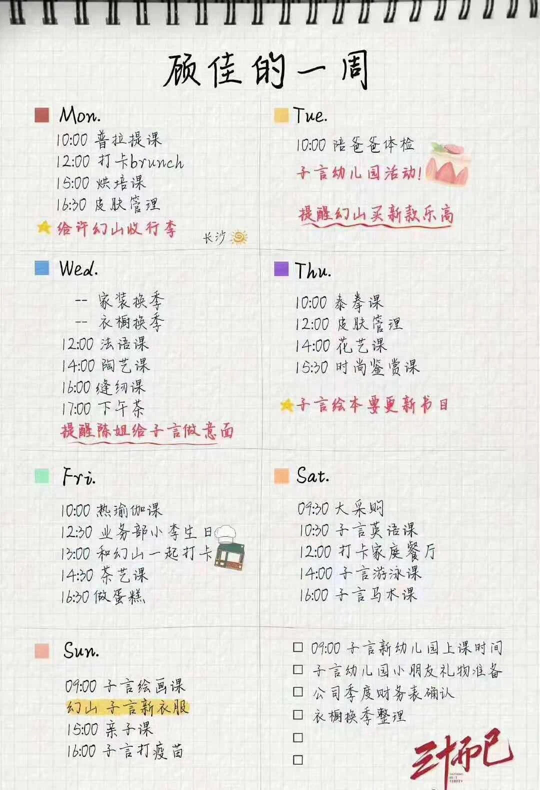 顾佳的一周
Mon.
10:00 普拉提课
12:00 打卡brunch
15:00 烘培课
16:30 皮肤管理
给许幻山收行李
长沙
Tue.
10:00 陪爸爸体检
子言幼儿园活动!
提醒幻山买新款乐高
Wed.
-- 家装换季
-- 衣橱换季
12:00 法语课
14:00 陶艺课
16:00 缝纫课
17:00 下午茶
提醒陈姐给子言做意面
Thu.
10:00 泰拳课
12:00 皮肤管理
14:00 花艺课
15:30 时尚鉴赏课
子言绘本要更新书目
Fri.
10:00 热瑜伽课
12:30 业务部小李生日
13:00 和幻山一起打卡
14:30 茶艺课
16:30 做蛋糕
Sat.
09:30 大采购
10:30 子言英语课
12:00 打卡家庭餐厅
14:00 子言游泳课
16:00 子言马术课
Sun.
09:00 子言绘画课
幻山 子言新衣服
15:00 亲子课
16:00 子言打疫苗
09:00 子言新幼儿园上课时间
子言幼儿园小朋友礼物准备
公司季度财务表确认
衣橱换季整理
三十而已